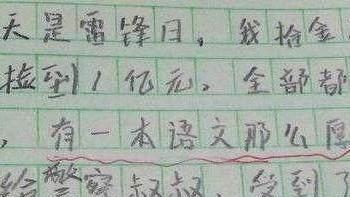 天是雷锋日，我拾金
捡到1亿元。全部都
，有一本语文那么厚
给警察叔叔，受到了